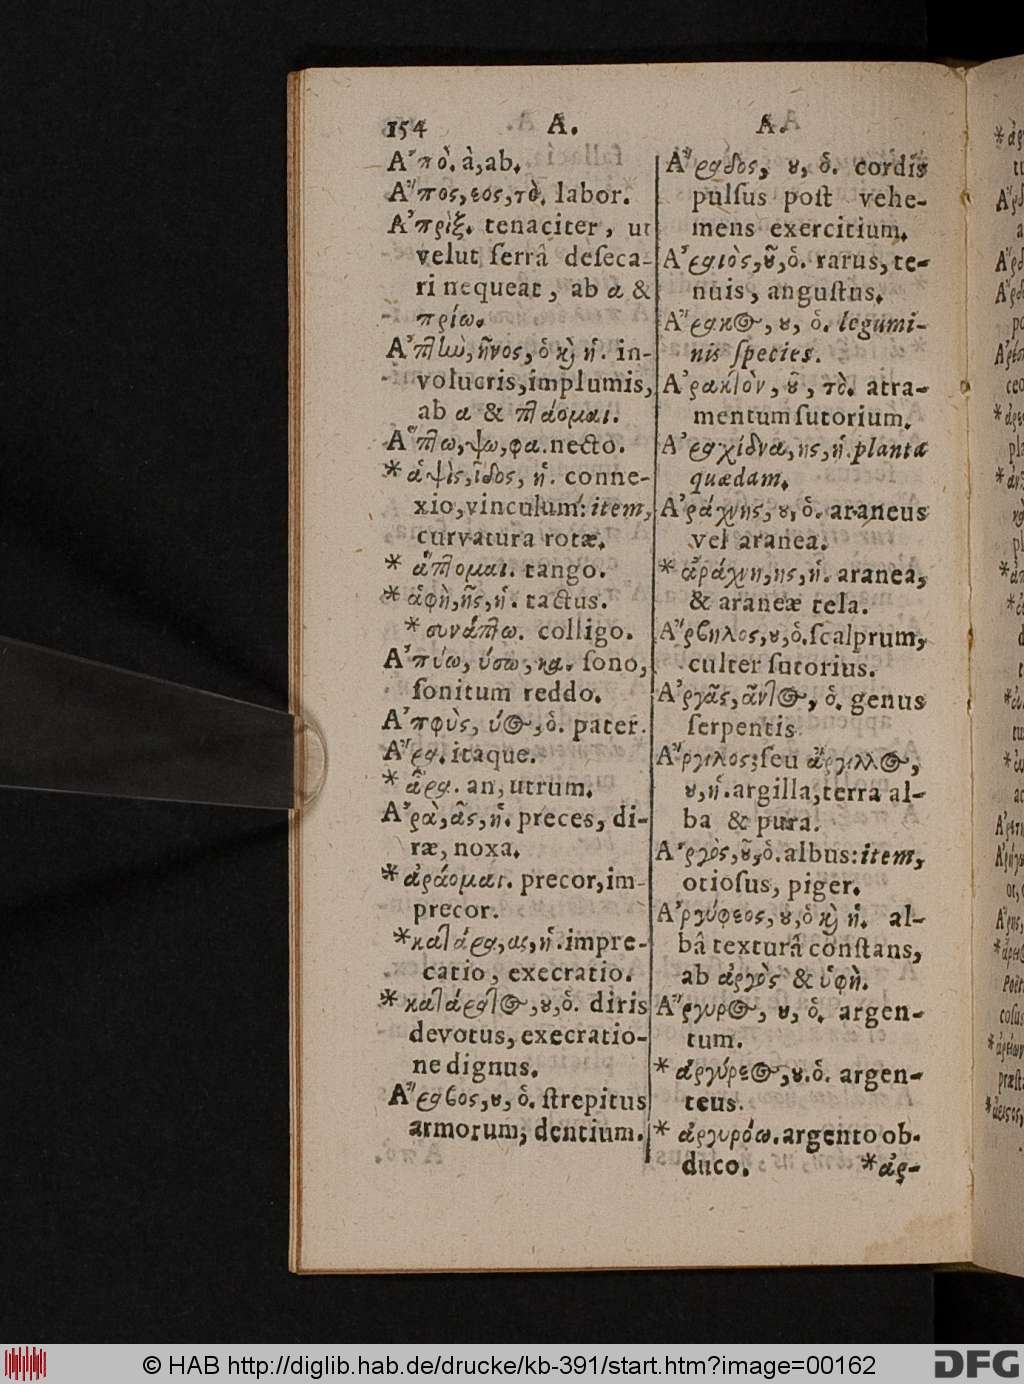 154 A. A.
Ἀπὸ. à, ab.
Ἄπος, εος, τὸ. labor.
Ἀπρὶξ. tenaciter, ut
velut serrâ deseca-
ri nequeat, ab α &
πρίω.
Ἀπτὼ, ῆνος, ὁ καὶ ἡ. in-
volucris, implumis,
ab α & πτάομαι.
Ἅπτω, ψω, φα. necto.
* ἁψὶς, ῖδος, ἡ. conne-
xio, vinculum: item,
curvatura rotæ.
* ἅπτομαι. tango.
* ἁφὴ, ῆς, ἡ. tactus.
* συνάπτω. colligo.
Ἀπύω, ύσω, κα. sono,
sonitum reddo.
Ἀπφὺς, ύος, ὁ. pater.
Ἄρα. itaque.
* ἆρα. an, utrum.
Ἀρὰ, ᾶς, ἡ. preces, di-
ræ, noxa.
* ἀράομαι. precor, im-
precor.
* κατάρα, ας, ἡ. impre-
catio, execratio.
* κατάρατος, ου, ὁ. diris
devotus, execratio-
ne dignus.
Ἄραβος, ου, ὁ. strepitus
armorum, dentium.
Ἄραδος, ου, ὁ. cordis
pulsus post vehe-
mens exercitium.
Ἀραιὸς, οῦ, ὁ. rarus, te-
nuis, angustus.
Ἄρακος, ου, ὁ. legumi-
nis species.
Ἀρακτὸν, οῦ, τὸ. atra-
mentum sutorium.
Ἀραχίδνα, ης, ἡ. planta
quædam.
Ἀράχνης, ου, ὁ. araneus
vel aranea.
* ἀράχνη, ης, ἡ. aranea,
& araneæ tela.
Ἄρβηλος, ου, ὁ. scalprum,
culter sutorius.
Ἀργᾶς, ᾶντος, ὁ. genus
serpentis
Ἄργιλος; seu ἄργιλλος,
ου, ἡ. argilla, terra al-
ba & pura.
Ἀργὸς, οῦ, ὁ. albus: item,
otiosus, piger.
Ἀργύφεος, ου, ὁ καὶ ἡ. al-
bâ texturâ constans,
ab ἀργὸς & ὑφὴ.
Ἄργυρος, ου, ὁ. argen-
tum.
* ἀργύρεος, ου. ὁ. argen-
teus.
* ἀργυρόω. argento ob-
duco. * ἀρ-
© HAB http://diglib.hab.de/drucke/kb-391/start.htm?image=00162
DFG